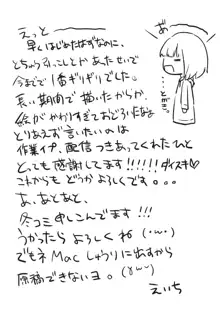 えっと
早くはじめたはずなのに、
とちゅうひっこしとかあったせいで
今までで1番ギリギリでした。
長い期間で描いたからか
絵がかわりすぎておどろいたなぁ
とりあえず言いたいのは
作業イプ、配信つきあってくれたひと
とっても感謝してます!!!!!!ダイスキ♡
これからもどうかよろしくです。。。
あ、あとあと、
冬コミ申しこんでます!!!
うかったらよろしくね(・ω・)
でもネMacしゅうりに出すから
原稿できないヨ。
えいち
あ